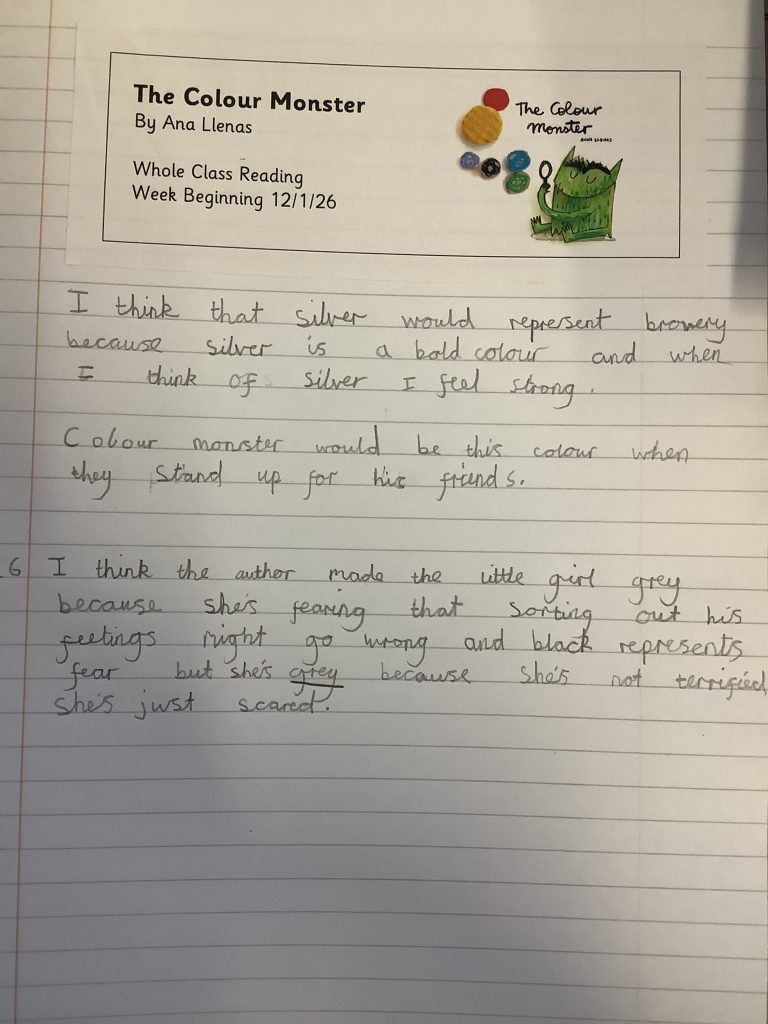 The Colour Monster
By Ana Llenas
Whole Class Reading
Week Beginning 12/1/26
The Colour
Monster
ANNA LLENAS
I think that silver would represent browery
because silver is a bold colour and when
I think of silver I feel strong.
Colour monster would be this colour when
they stand up for his friends.
6 I think the author made the little girl grey
because she's fearing that sorting out his
feelings might go wrong and black represents
fear but she's grey because she's not terrified
she's just scared.